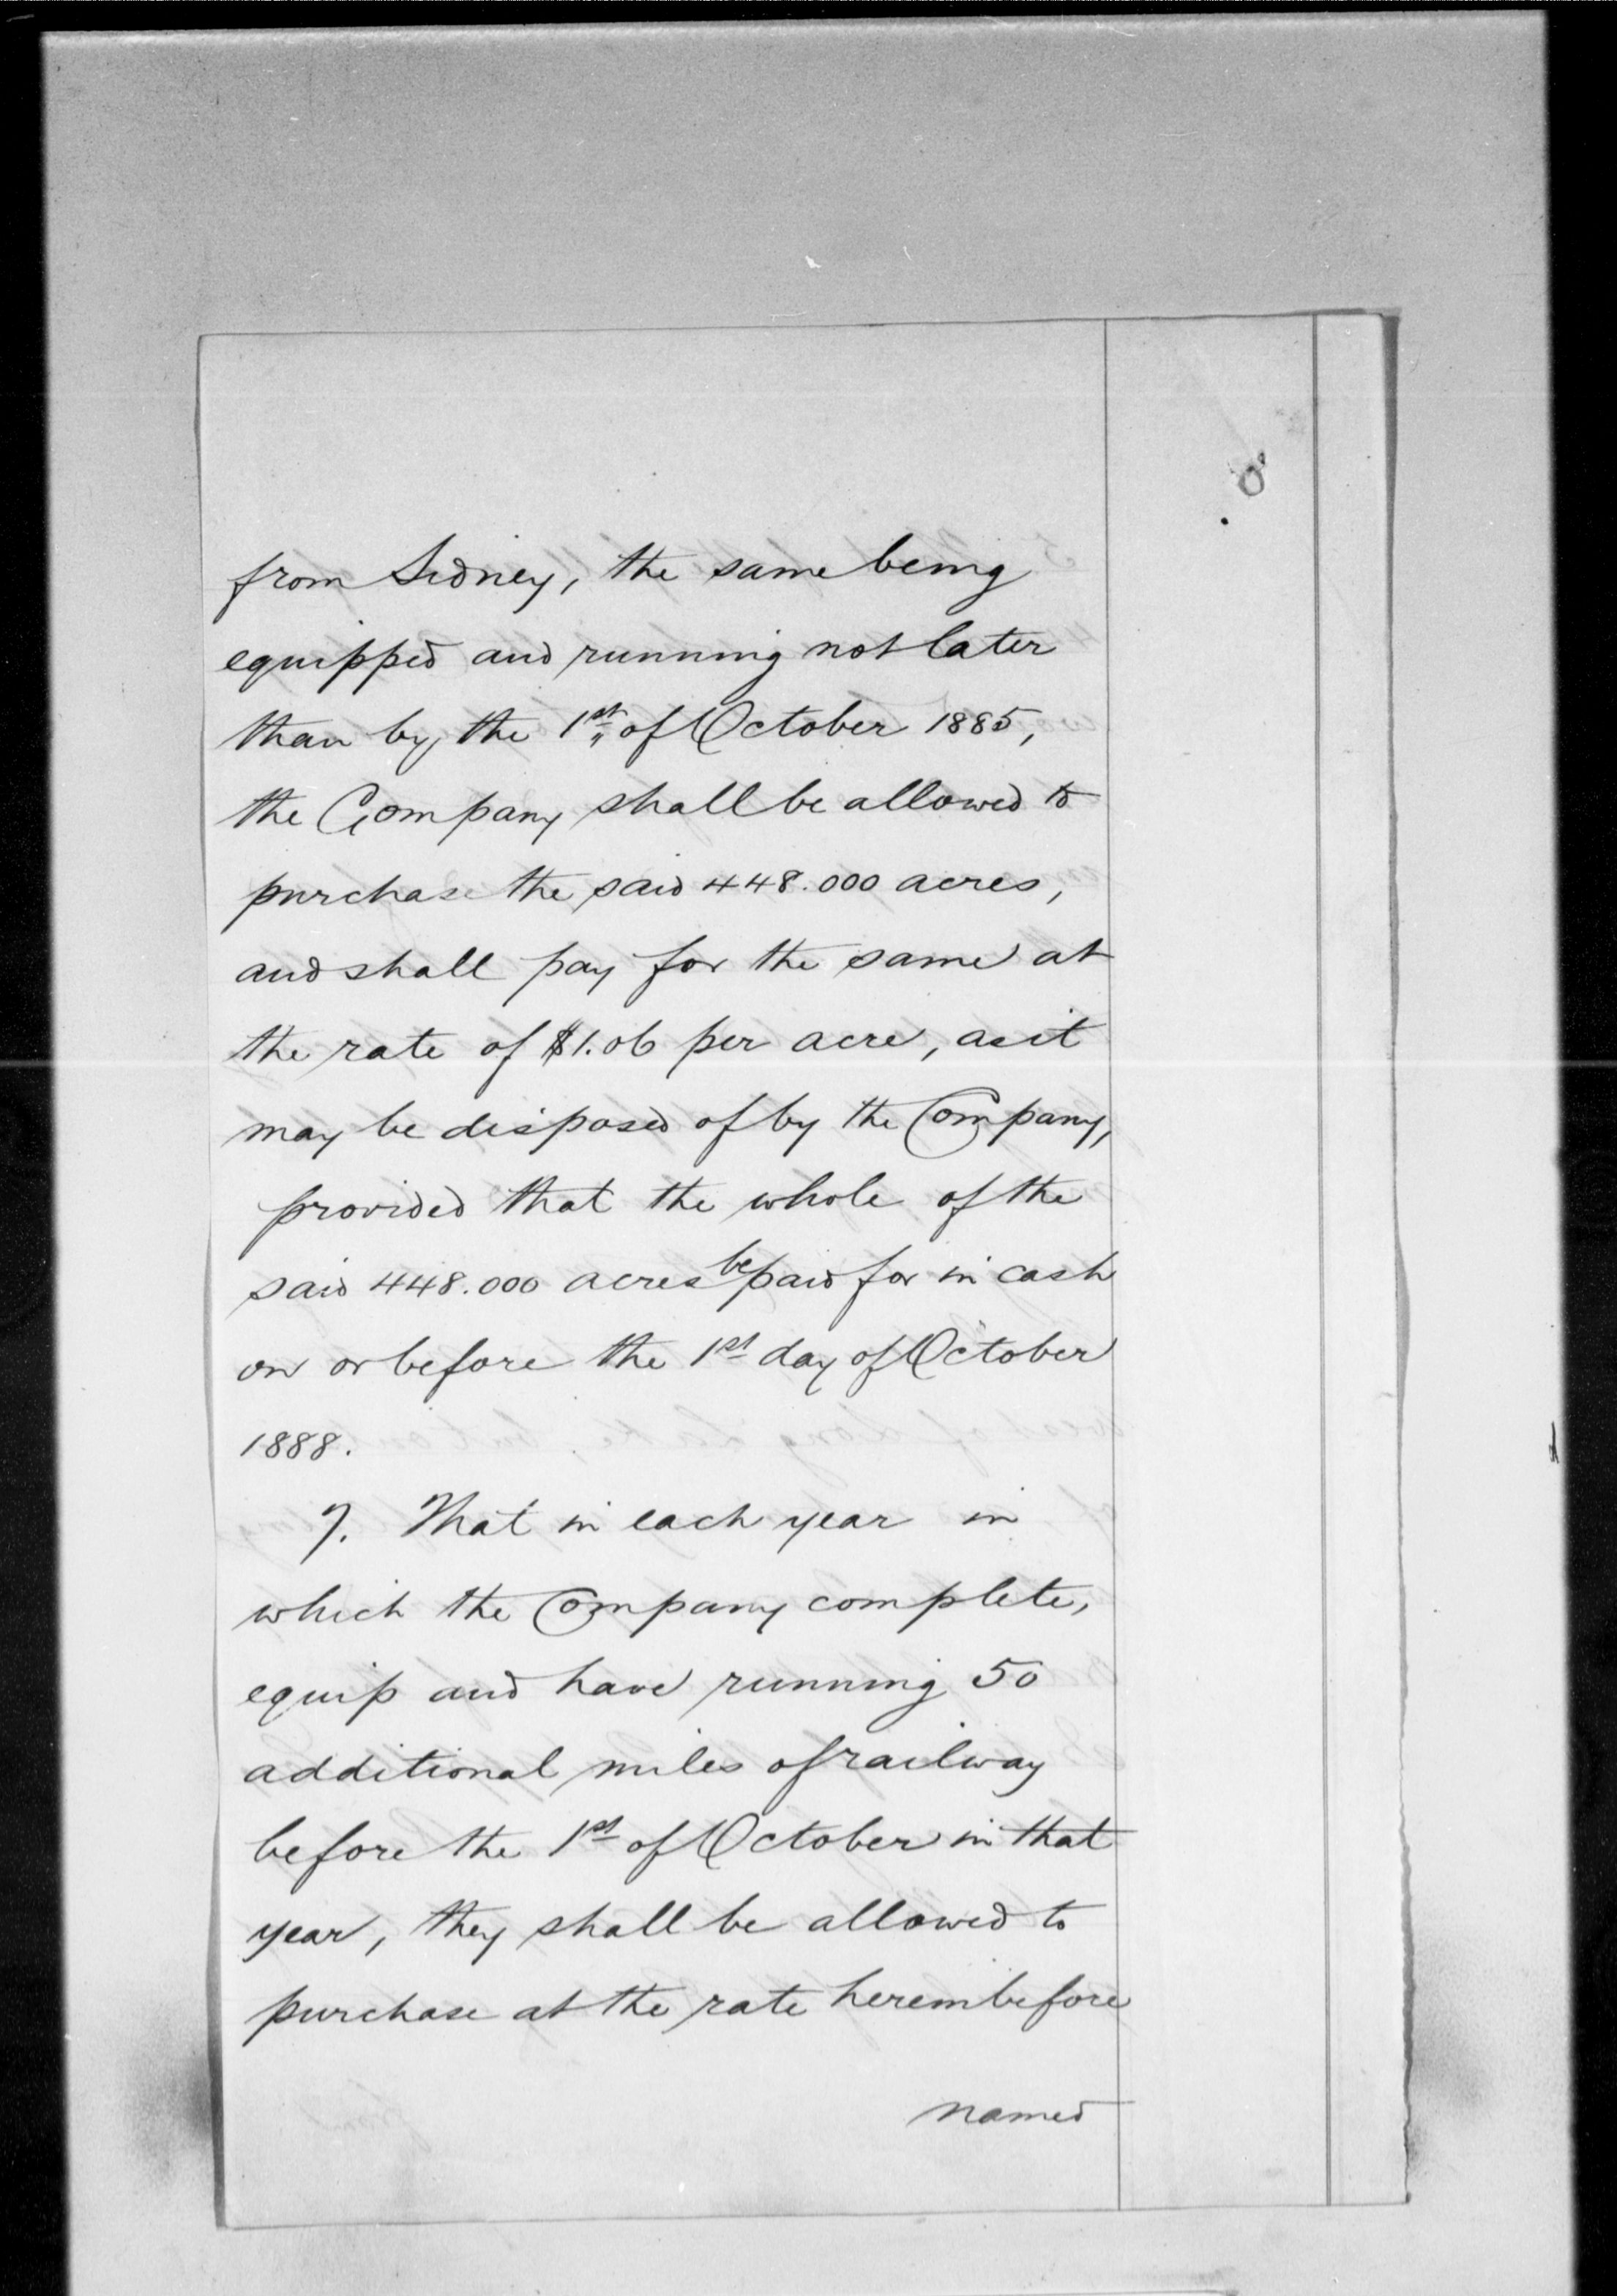 from Sidney, the same being
equipped and running not later
than by the 1st of October 1885,
the Company shall be allowed to
purchase the said 448.000 acres,
and shall pay for the same at
the rate of $1.06 per acre, as it
may be disposed of by the Company,
provided that the whole of the
said 448.000 acres be paid for in cash
on or before the 1st day of October
1888.
7. That in each year in
which the Company complete,
equip and have running 50
additional miles of railway
before the 1st of October in that
year, they shall be allowed to
purchase at the rate hereinbefore
named